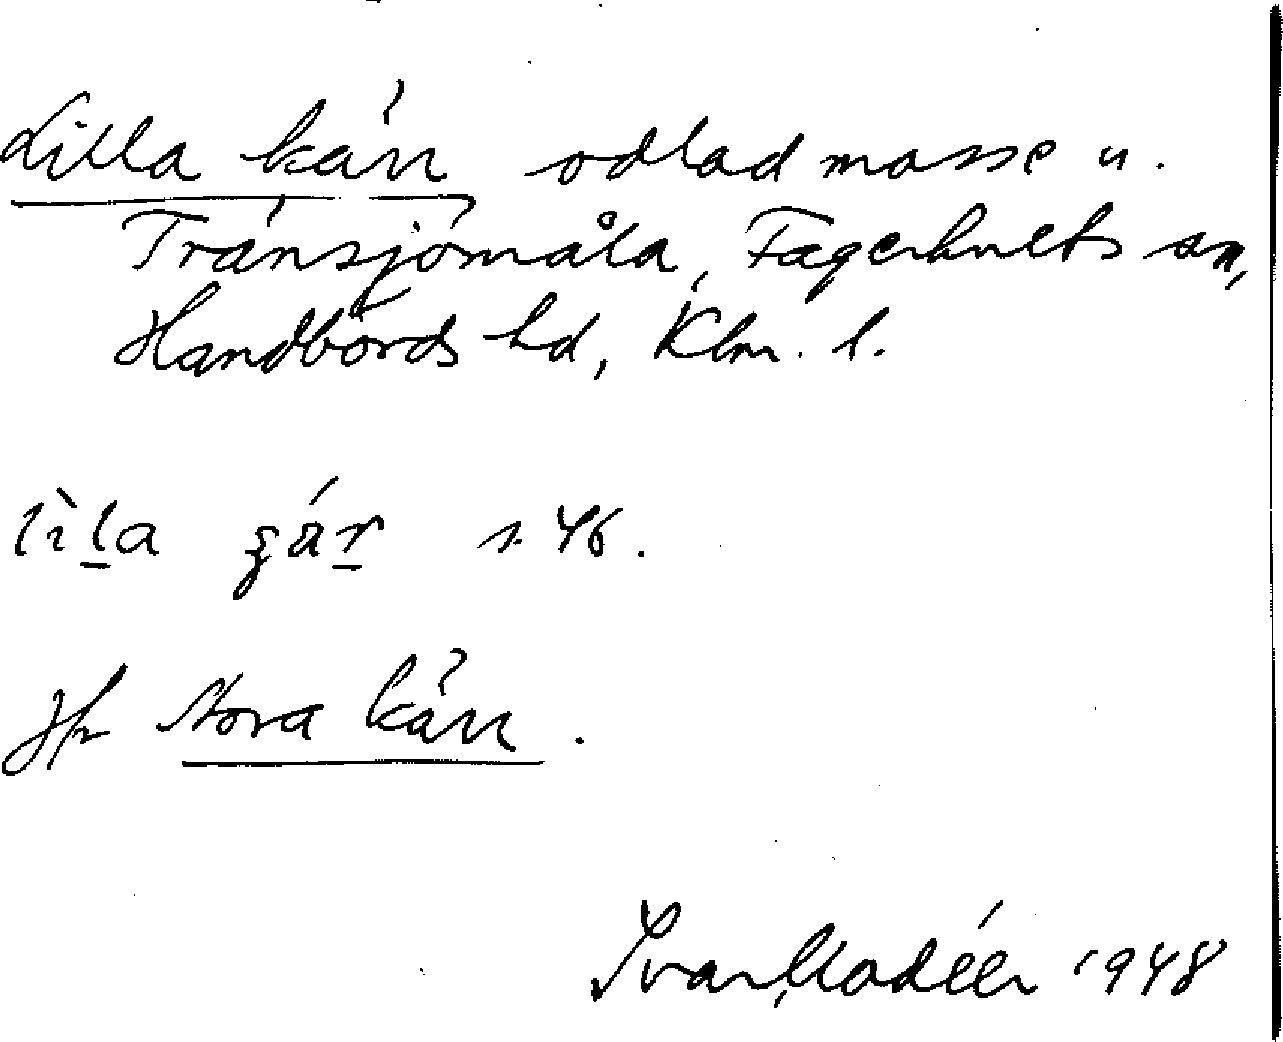 Lilla kärr odlad mosse u.
Tränsjömåla, Fagerhults sn,
Handbörds hd, Klm. l.
lìla şár s. 46.
Jfr Stora kärr.
Ivar Modéer 1948